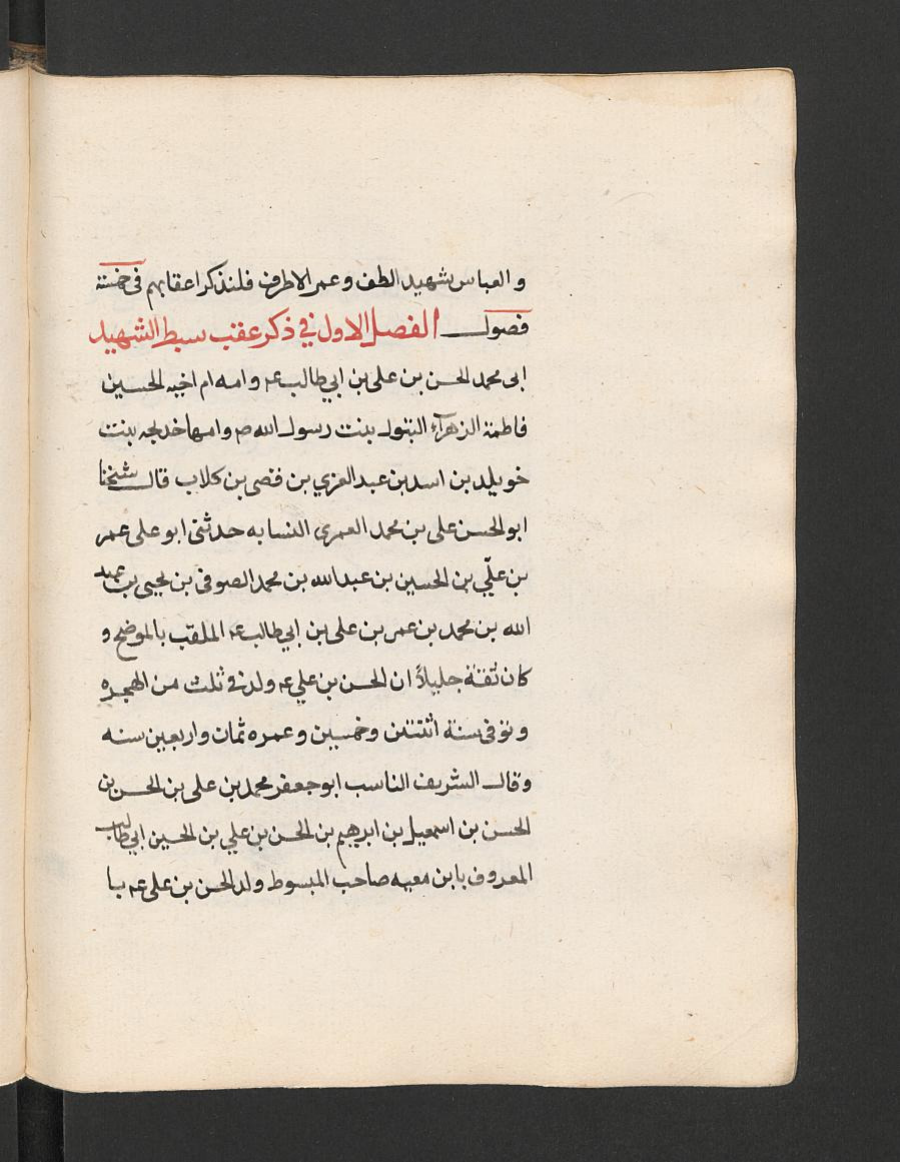 والعباس شهيد الطف وعمر الاطرف فلنذكر اعقابهم فى خمسة
فصول الفصل الاول في ذكر عقب سبط الشهيد
ابى محمد الحسن بن على بن ابي طالب عه وامه ام اخيه الحسين
فاطمة الزهرآء البتول بنت رسول الله ص وامها خديجه بنت
خويلد بن اسد بن عبد العزي بن قصى بن كلاب قال شيخنا
ابو الحسن على بن محمد العمري النسابه حدثنى ابو على عمر
بن علّي بن الحسين بن عبد الله بن محمد الصوفى بن يحيى بن عبد
الله بن محمد بن عمر بن على بن ابي طالب عه الملقب بالموضح و
كان ثقة جليلاً ان الحسن بن علي عه ولد في ثلث من الهجره
وتوفى سنة اثنتين وخمسين وعمره ثمان واربعين سنه
وقال الشريف الناسب ابو جعفر محمد بن على بن الحسن بن
الحسن بن اسمعيل بن ابرهيم بن الحسن بن علي بن الحسين ابي طالب
المعروف بابن معيه صاحب المبسوط ولد الحسن بن على عه با